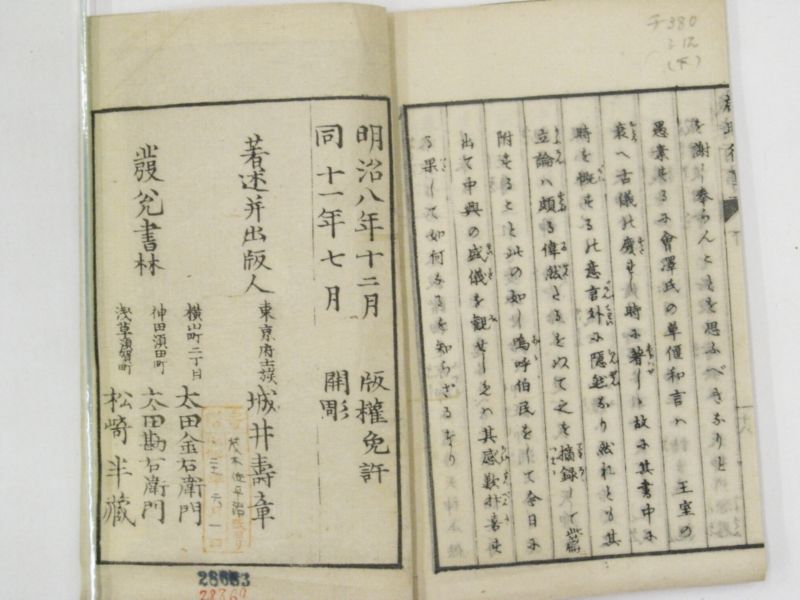 を謝し奉らんことを思ふべきなりと
愚案をるに會澤氏の草偃和言ハ王室の
衰へ古儀の廢せし時に著しゝ故に其書中に
時を慨せるの意言外に隱然たり然れとも其
立論ハ頗る偉然たるを以て之を摘録して此篇に
附をることゝ此の如し嗚呼伯民をして今日に
出て中興の盛儀を觀せしめハ其感歎抃喜せ
る果して如何なるを知らざるなり
明治八年十二月 版權免許
同 十一年七月 開彫
著述并出版人 東京府士族 城井壽章
發兌書林 横山町三丁目 太田金右衛門
仲田須田町 太田勘右衛門
浅草須賀町 松﨑半藏
28683
28369
千380